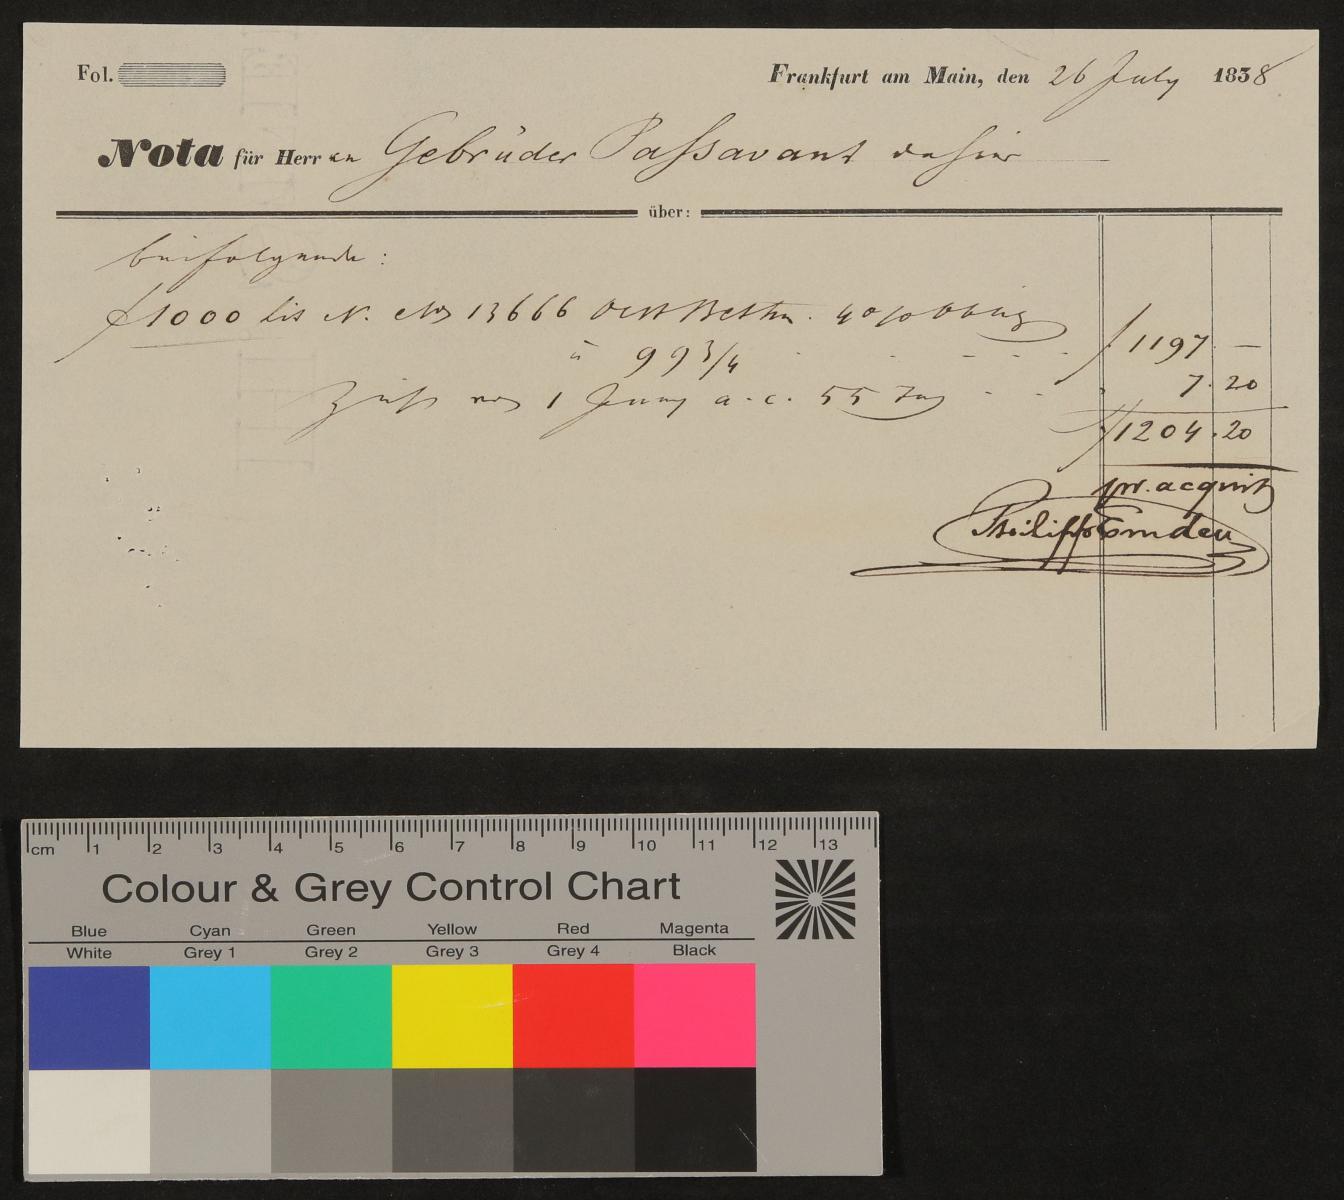 Fol.
Frankfurt am Main, den 26 July 1838
Nota für Herren Gebrüder Passavant dahier
über:
beifolgende:
f 1000 Lit N. No 13666 Oest Bethm. 4 % Oblig
à 99 3/4 f 1197. —
Zinß vom 1 Juny a. c. 55 Tag 7. 20
f 1204. 20
pr. acquit
Philipp Emden
cm 1 2 3 4 5 6 7 8 9 10 11 12 13
Colour & Grey Control Chart
Blue Cyan Green Yellow Red Magenta
White Grey 1 Grey 2 Grey 3 Grey 4 Black